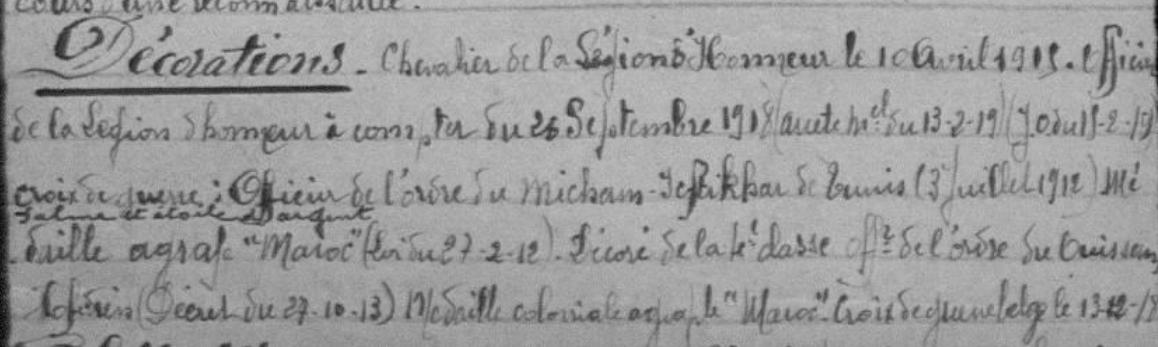 cours d'une reconnaissance.
Décorations - Chevalier de la Légion d'Honneur le 10 Avril 1915. Officier
de la Légion d'honneur à compter du 26 Septembre 1918 (arrêté mel du 13-2-19) (J.O du 15-2-19)
croix de guerre ; Officier de l'ordre du Micham-Jeftikhar de Tunis (3 Juillet 1912) Mé
Palme et étoile d'argent
daille agrafe "Maroc" (loi du 27-2-12). Décoré de la classe offr de l'ordre du Ouissam
(Décret du 27-10-13) Médaille coloniale agrafe "Maroc". Croix de guerre belge le 13-12-18